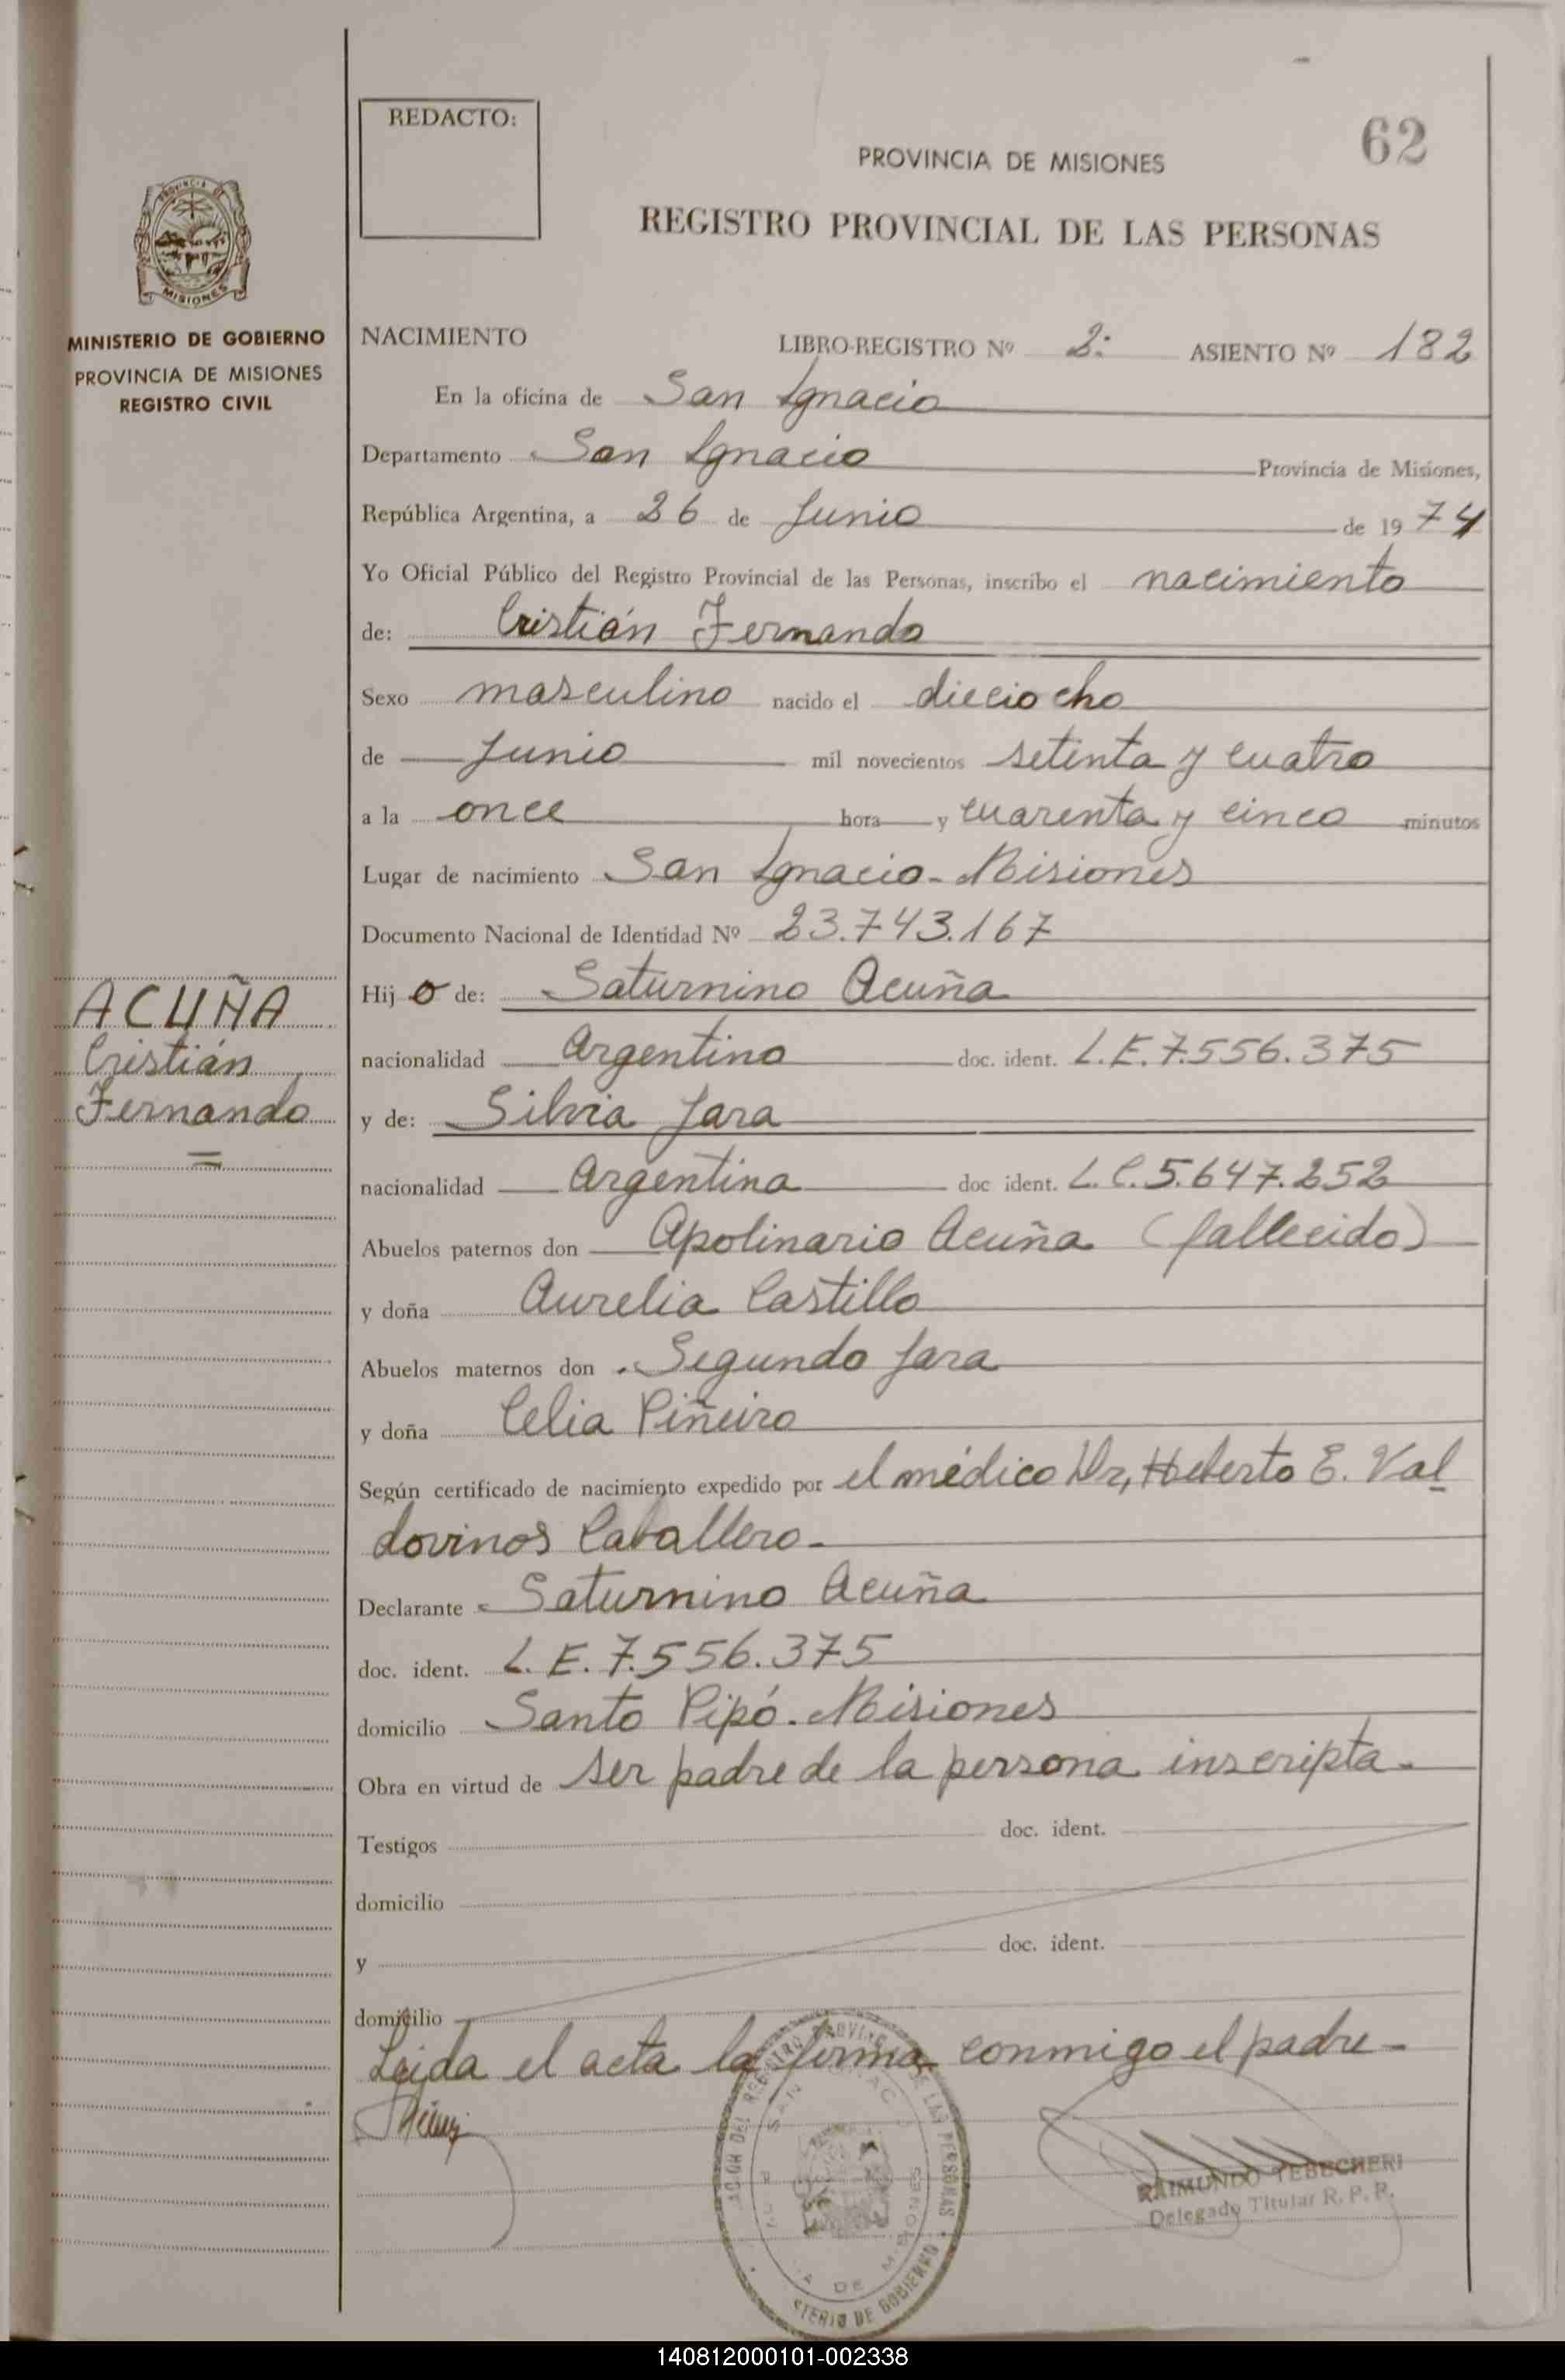 REDACTO:
62
PROVINCIA DE MISIONES
REGISTRO PROVINCIAL DE LAS PERSONAS
PROVINCIA DE
MISIONES
MINISTERIO DE GOBIERNO
PROVINCIA DE MISIONES
REGISTRO CIVIL
NACIMIENTO LIBRO-REGISTRO Nº 2: ASIENTO Nº 182
En la oficina de San Ignacio
Departamento San Ignacio Provincia de Misiones,
República Argentina, a 26 de Junio de 1974
Yo Oficial Público del Registro Provincial de las Personas, inscribo el nacimiento
de: Cristián Fernando
Sexo masculino nacido el dieciocho
de Junio mil novecientos setenta y cuatro
a la once hora y cuarenta y cinco minutos
Lugar de nacimiento San Ignacio - Misiones
Documento Nacional de Identidad Nº 23.743.167
ACUÑA
Cristián
Fernando
Hijo de: Saturnino Acuña
nacionalidad Argentino doc. ident. L.E.7.556.375
y de: Silvia Jara
nacionalidad Argentina doc ident. L.C.5.647.252
Abuelos paternos don Apolinario Acuña (fallecido)
y doña Aurelia Castillo
Abuelos maternos don Segundo Jara
y doña Celia Piñeiro
Según certificado de nacimiento expedido por el médico Dr, Heberto E. Val
dovinos Caballero.
Declarante Saturnino Acuña
doc. ident. L.E.7.556.375
domicilio Santo Pipó. Misiones
Obra en virtud de ser padre de la persona inscripta.
Testigos doc. ident.
domicilio
y doc. ident.
domicilio
Leida el acta la firma conmigo el padre-
RAIMUNDO TEBECHERI
Delegado Titular R. P. P.
140812000101-002338